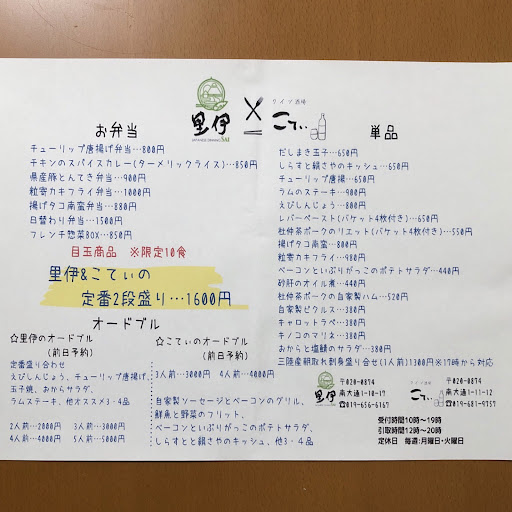 里伊
JAPANESE DINING SAI
×
ワイン酒場
こてぃ
お弁当
チューリップ唐揚げ弁当…800円
チキンのスパイスカレー(ターメリックライス)…850円
県産豚とんてき弁当…900円
粒寄カキフライ弁当…1000円
揚げタコ南蛮弁当…880円
日替わり弁当…1500円
フレンチ惣菜BOX…850円
目玉商品 ※限定10食
里伊&こてぃの
定番2段盛り…1600円
単品
だしまき玉子…650円
しらすと絹さやのキッシュ…650円
チューリップ唐揚…650円
ラムのステーキ…900円
えびしんじょう…800円
レバーペースト(バケット4枚付き)…650円
杜仲茶ポークのリエット(バケット4枚付き)…550円
揚げタコ南蛮…800円
粒寄カキフライ…980円
ベーコンといぶりがっこのポテトサラダ…440円
砂肝のオイル煮…440円
杜仲茶ポークの自家製ハム…520円
自家製ピクルス…380円
キャロットラペ…380円
キノコのマリネ…380円
おからと塩鯖のサラダ…380円
三陸産朝取れ刺身盛り合せ(1人前)1300円※17時から対応
オードブル
☆里伊のオードブル
(前日予約)
定番盛り合わせ
えびしんじょう、チューリップ唐揚げ、
玉子焼、おからサラダ、
ラムステーキ、他オススメ3・4品
2人前…2000円 3人前…3000円
4人前…4000円 5人前…5000円
☆こてぃのオードブル
(前日予約)
3人前…3000円 4人前…4000円
自家製ソーセージとベーコンのグリル、
鮮魚と野菜のフリット、
ベーコンといぶりがっこのポテトサラダ、
しらすとと絹さやのキッシュ、他3・4品
里伊
〒020-0874
南大通1-10-17
☎019-656-6167
ワイン酒場
こてぃ
〒020-0874
南大通1-11-12
☎019-681-9757
受付時間10時〜19時
引取時間12時〜20時
定休日 毎週:月曜日・火曜日